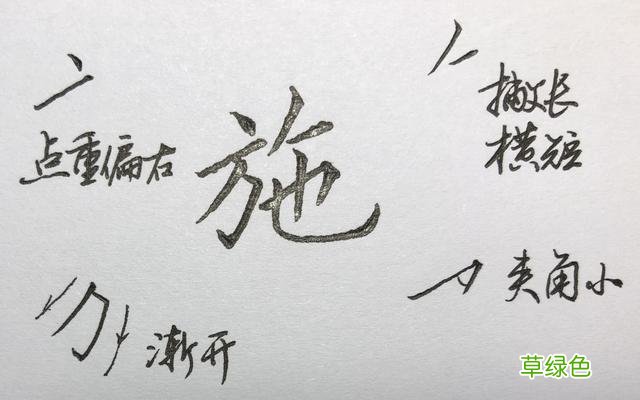 点重偏右
施
撇长
横短
夹角小
渐开
草绿色